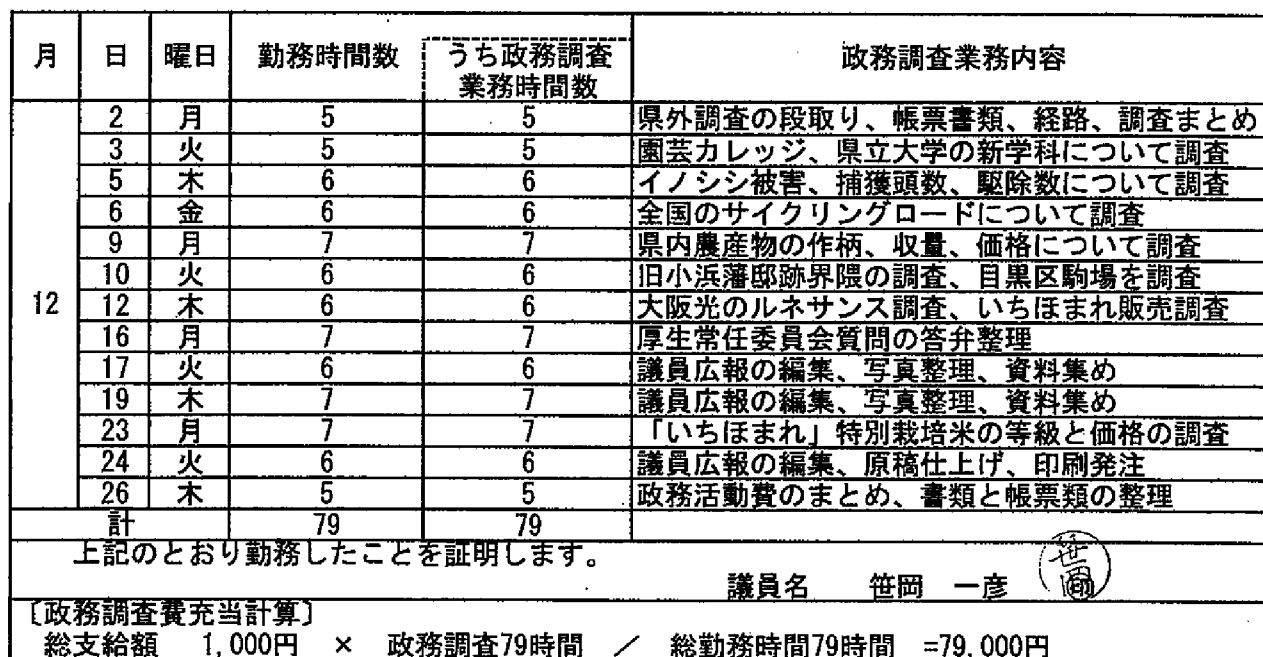 月 日 曜日 勤務時間数 うち政務調査業務時間数 政務調査業務内容
12 2 月 5 5 県外調査の段取り、帳票書類、経路、調査まとめ
3 火 5 5 園芸カレッジ、県立大学の新学科について調査
5 木 6 6 イノシシ被害、捕獲頭数、駆除数について調査
6 金 6 6 全国のサイクリングロードについて調査
9 月 7 7 県内農産物の作柄、収量、価格について調査
10 火 6 6 旧小浜藩邸跡界隈の調査、目黒区駒場を調査
12 木 6 6 大阪光のルネサンス調査、いちほまれ販売調査
16 月 7 7 厚生常任委員会質問の答弁整理
17 火 6 6 議員広報の編集、写真整理、資料集め
19 木 7 7 議員広報の編集、写真整理、資料集め
23 月 7 7 「いちほまれ」特別栽培米の等級と価格の調査
24 火 6 6 議員広報の編集、原稿仕上げ、印刷発注
26 木 5 5 政務活動費のまとめ、書類と帳票類の整理
計 79 79
上記のとおり勤務したことを証明します。
議員名 笹岡 一彦 笹岡
〔政務調査費充当計算〕
総支給額 1,000円 × 政務調査79時間 / 総勤務時間79時間 =79,000円